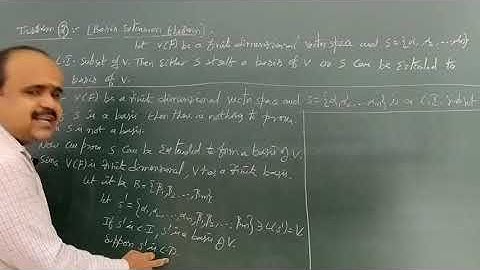 Theorem ②:- [Basis Extension theorem].
Let V(F) be a finite dimensional vector space and S = {α₁, α₂, ..., αₙ}
L.I. subset of V. Then either S itself a basis of V or S can be Extended to
basis of V.
V(F) be a finite dimensional vector space and S = {α₁, α₂ ... αₙ} is a L.I. subset
S is a basis then there is nothing to prove.
S is not a basis.
Now we prove S can be Extended to form a basis of V.
Since V(F) is finite dimensional, V has a finite basis.
Let it be B = {β₁, β₂, ..., βₘ}
Let S' = {α₁, α₂, ..., αₙ, β₁, β₂, ..., βₘ} ∋ L(S') = V.
If S' is L.I, S' is a basis of V.
Suppose S' is L.D.